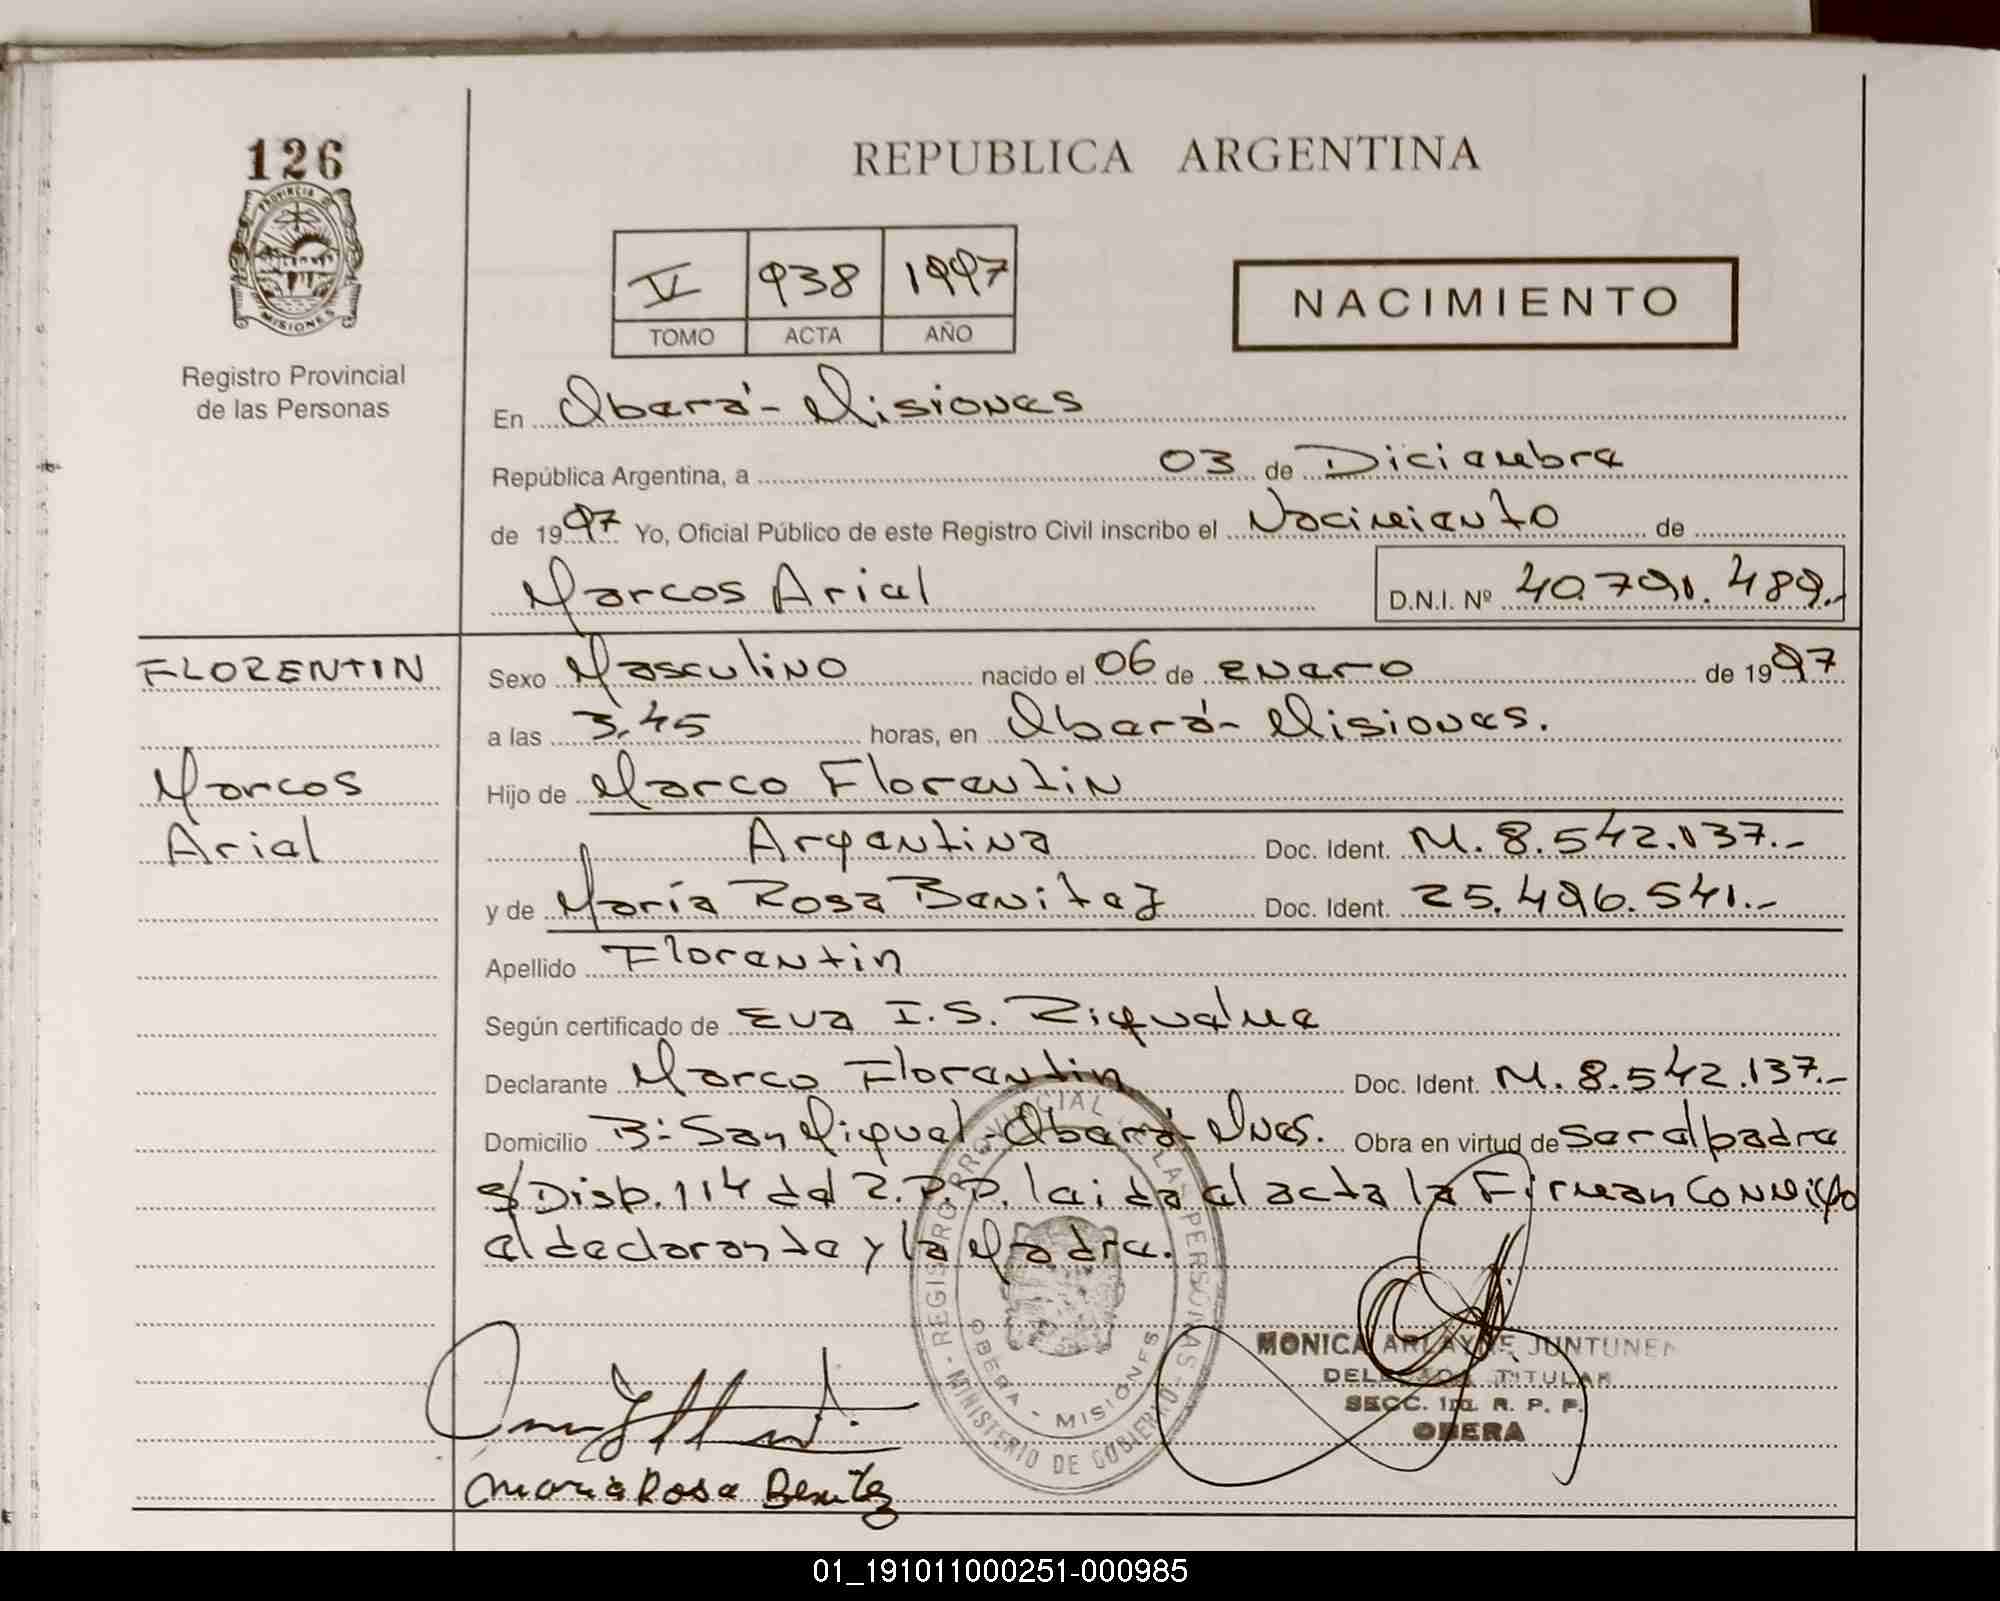 126
PROVINCIA DE
MISIONES
Registro Provincial
de las Personas
REPUBLICA ARGENTINA
V 938 1997
TOMO ACTA AÑO
NACIMIENTO
En Oberá - Misiones
República Argentina, a 03 de Diciembre
de 1997 Yo, Oficial Público de este Registro Civil inscribo el Nacimiento de
Marcos Ariel D.N.I. Nº 40.790.489.-
FLORENTIN
Marcos
Ariel
Sexo Masculino nacido el 06 de enero de 1997
a las 3,45 horas, en Oberá - Misiones.
Hijo de Marco Florentin
Argentina Doc. Ident. M. 8.542.137.-
y de María Rosa Benitez Doc. Ident. 25.496.541.-
Apellido Florentin
Según certificado de Eva I. S. Riquelme
Declarante Marco Florentin Doc. Ident. M. 8.542.137.-
Domicilio B: San Miguel - Oberá - Mnes. Obra en virtud de ser el padre
s/Disp. 114 del R.P.P. leida el acta la Firman conmigo
el declarante y la Madre.
REGISTRO PROVINCIAL DE LAS PERSONAS - MINISTERIO DE GOBIERNO -
OBERA - MISIONES
MONICA ARLAYNE JUNTUNEN
DELEGADA TITULAR
SECC. 1ra. R. P. P.
OBERA
Maria Rosa Benitez
01_191011000251-000985